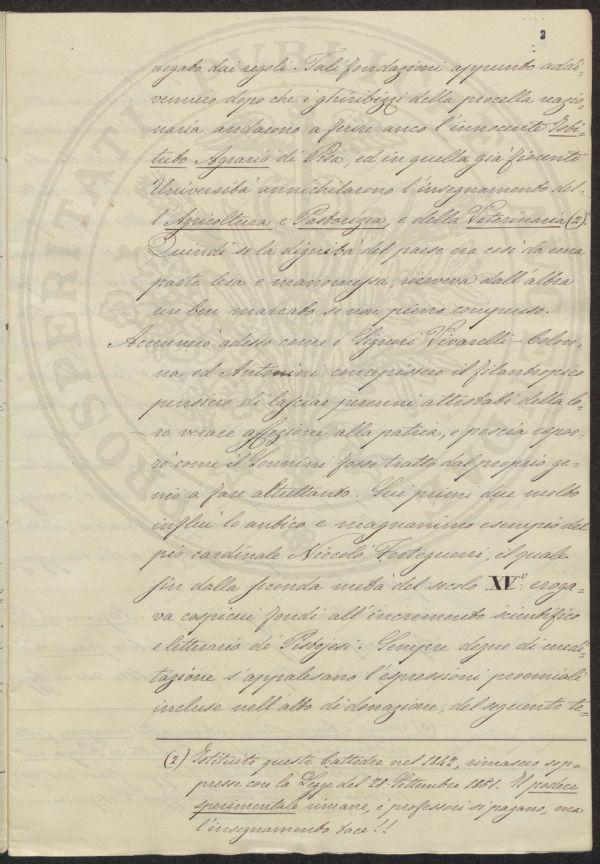 3
negato dai regoli. Tali fondazioni appunto addi-
vennero dopo che i ghiribizzi della procella reazio-
naria andarono a ferir anco l'innocente Isti-
tuto Agrario di Pisa, ed in quella già fiorente
Università annichilarono l'insegnamento del-
l'Agricoltura e Pastorizia, e della Veterinaria (2).
Quindi se la dignità del paese era così da una
parte lesa e manomessa, riceveva dall'altra
un ben marcato se non pieno compenso.
Accennerò adesso come i Signori Vivarelli-Colon-
na ed Antonini concepissero il filantropico
pensiero di lasciar perenni attestati della lo-
ro verace affezione alla patria, e poscia espor-
rò come il Gonnini fosse tratto dal proprio ge-
nio a fare altrettanto. Sui primi due molto
influì lo antico e magnanimo esempio del
pio cardinale Niccolò Forteguerri, il quale
fin dalla seconda metà del secolo XVº: eroga-
va cospicui fondi all'incremento scientifico
e letterario de' Pistojesi. Sempre degne di medi-
tazione s'appalesano l'espressioni proemiali
incluse nell'atto di donazione, del seguente te-
(2) Istituite queste Cattedre nel 1842, rimasero sop-
presse con la Legge del 28 Settembre 1851. Il podere
sperimentale rimane, i professori si pagano, ma
l'insegnamento tace!!
PROSPERITATI PUBLICAE